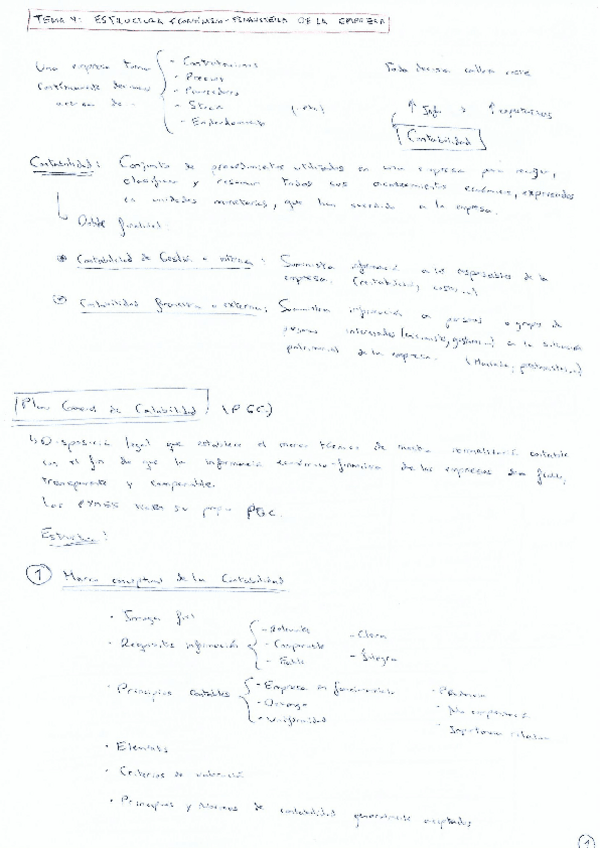 TEMA 4: ESTRUCTURA ECONÓMICO-FINANCIERA DE LA EMPRESA
Una empresa toma
continuamente decisiones
acerca de
- Contrataciones
- Precios
- Proveedores
- Stock
- Endeudamiento
(...etc)
Toda decisión conlleva
↑ Info → ↑ expectativas
Contabilidad
Contabilidad: Conjunto de procedimientos utilizados en una empresa para recoger,
clasificar y resumir todos sus acontecimientos económicos, expresados
en unidades monetarias, que han sucedido en la empresa.
Doble finalidad:
Contabilidad de Gestión o interna: Suministra información a los responsables de la
empresa. (rentabilidad, costes,...)
Contabilidad financiera o externa: Suministra información a personas o grupos de
personas interesados en la situación
patrimonial de la empresa. (Hacienda, prestamistas...)
Plan General de Contabilidad (PGC)
↳ Disposición legal que establece el marco técnico de normalización contable
con el fin de que la información económico-financiera de las empresas sea fiable,
transparente y comparable.
Las PYMES tienen su propio PGC.
Estructura:
1 Marco conceptual de la Contabilidad
· Imagen fiel
· Requisitos información
- Relevante
- Comparable
- Fiable
- Clara
- Íntegra
· Principios contables
- Empresa en funcionamiento
- Devengo
- Uniformidad
- Prudencia
- No compensación
- Importancia relativa
· Elementos
· Criterios de valoración
· Principios y Normas de contabilidad generalmente aceptados
1